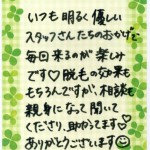 いつも明るく優しい
スタッフさんたちのおかげで
毎回来るのが楽しみ
です♡脱毛の効果も
もちろんですが、相談も
親身になって聞いて
くださり、助かってます♡
ありがとうございます☺